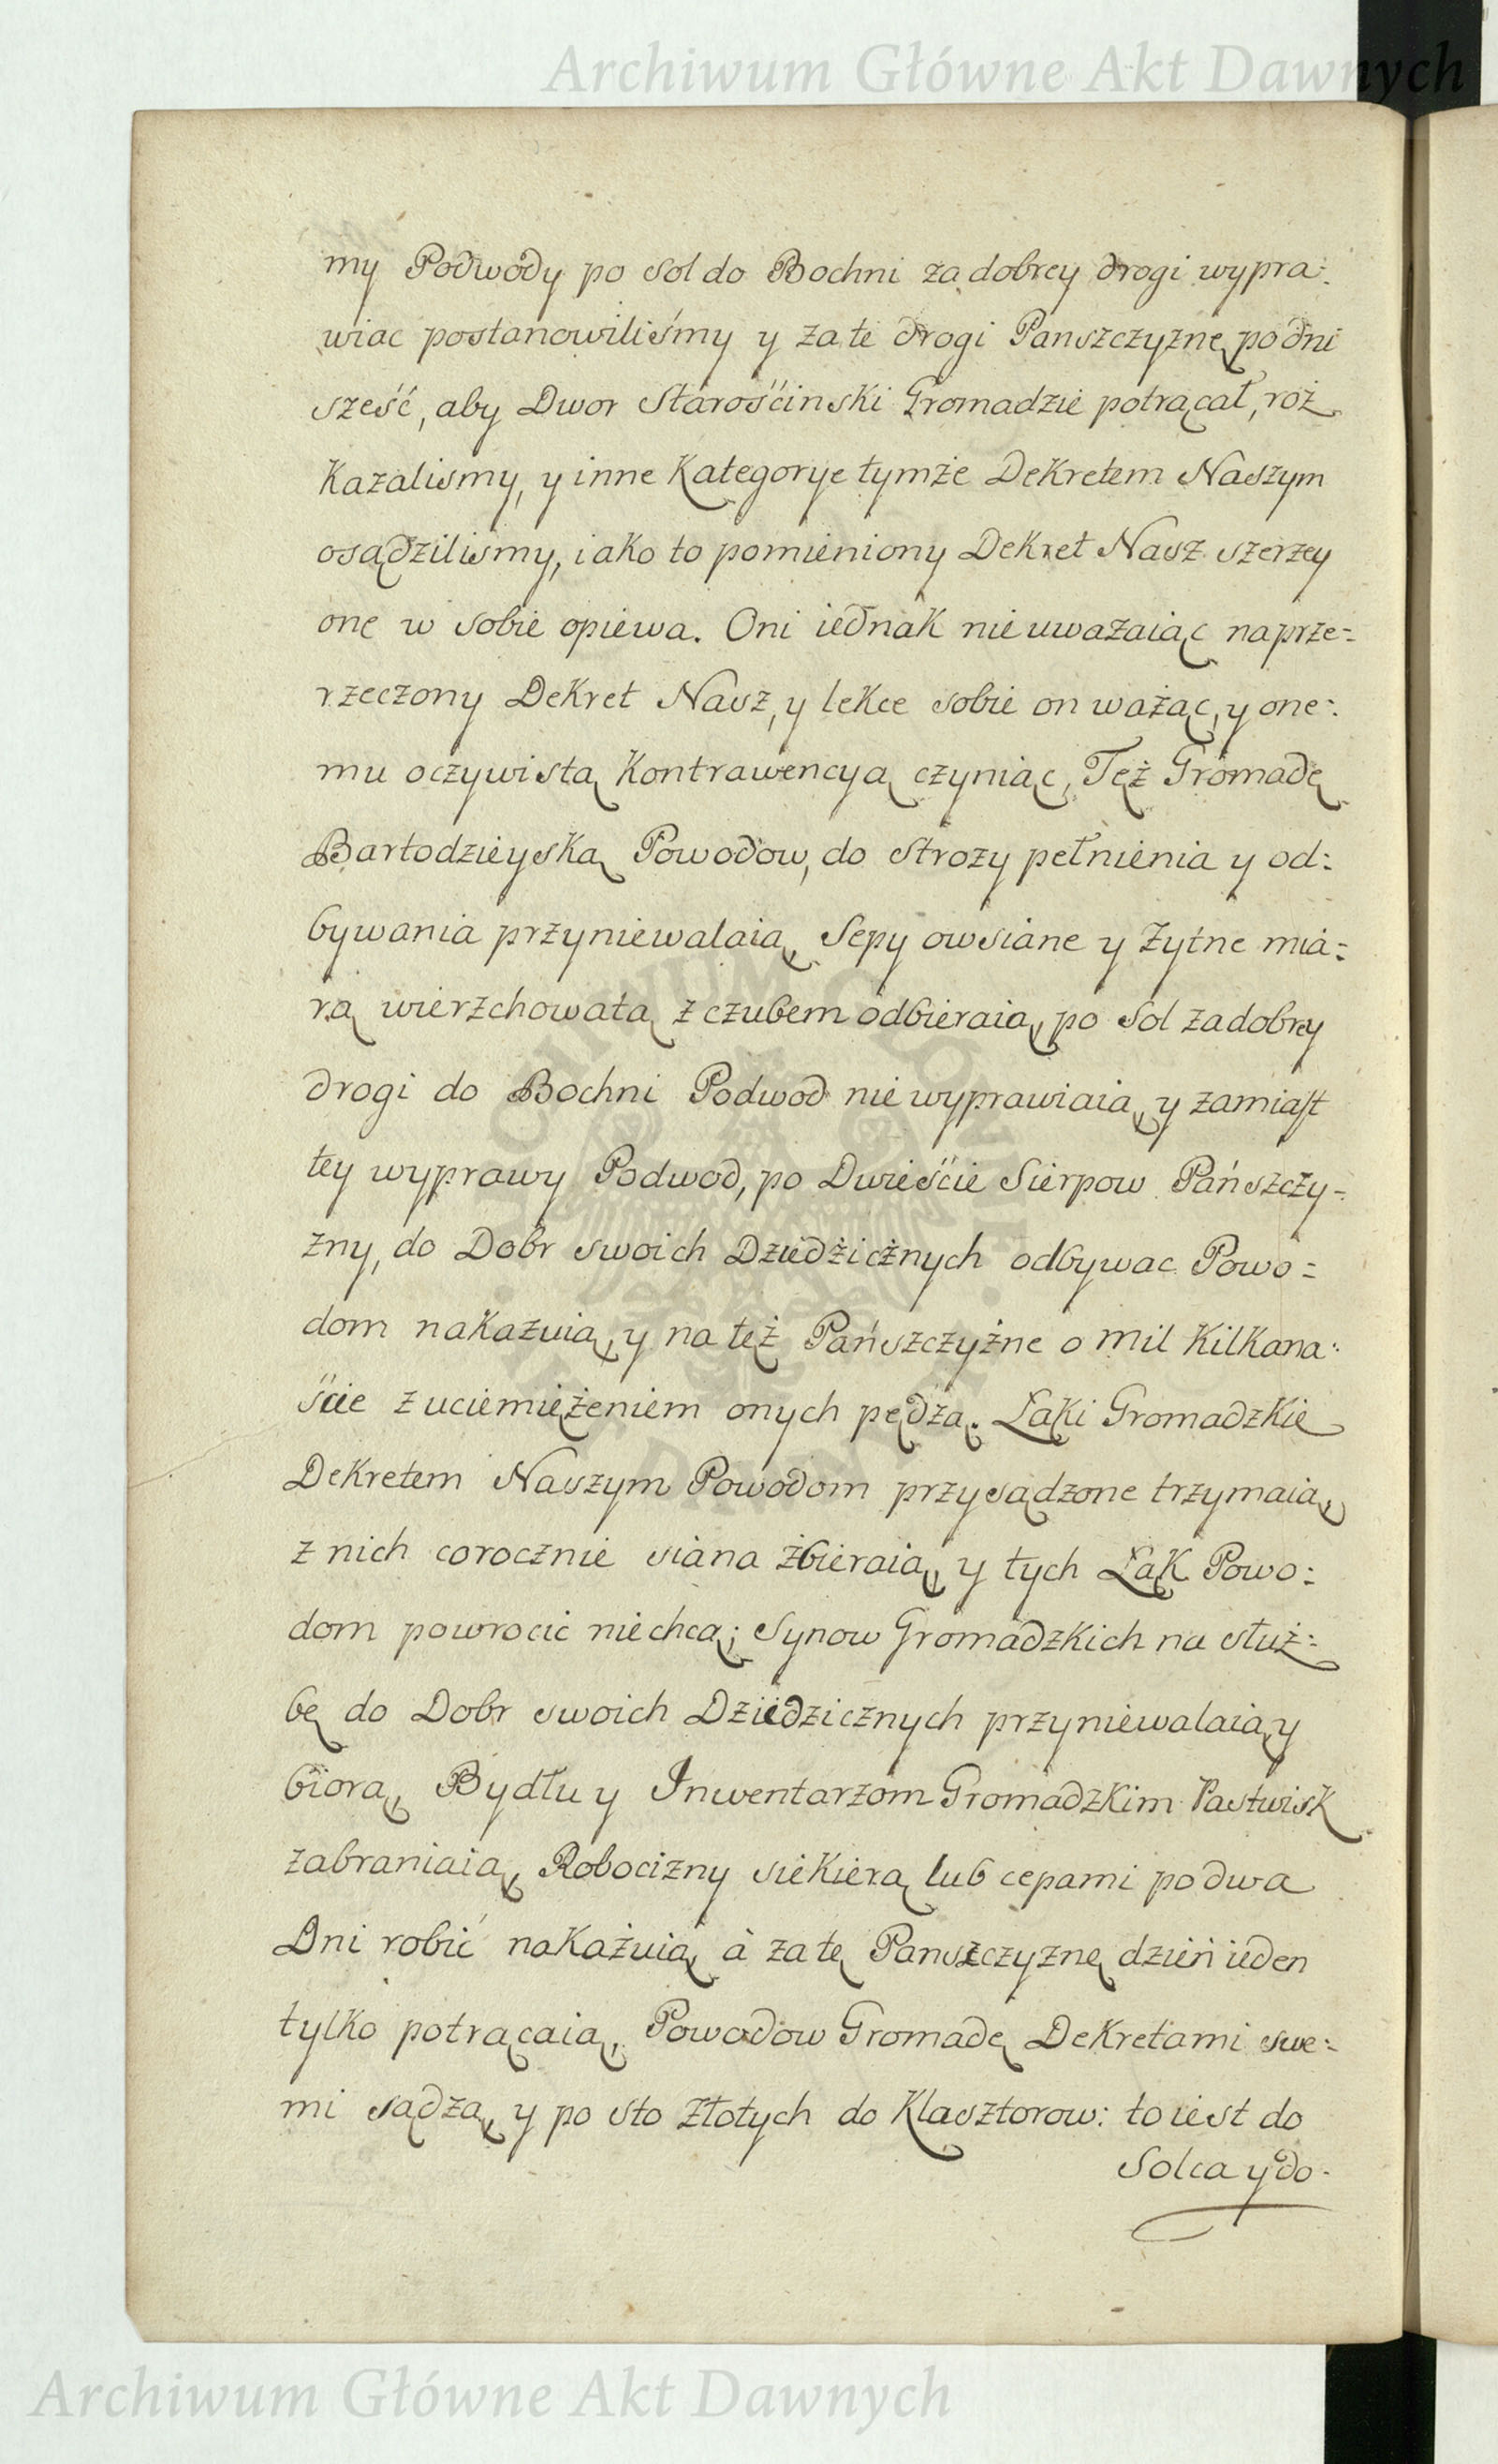 Archiwum Główne Akt Dawnych
my Podwody po sol do Bochni za dobrey drogi wypra:
wiac postanowiliśmy y za te drogi Panszczyznę po dni
sześć, aby Dwor Starościnski Gromadzie potrącał, roż
Kazalismy, y inne Kategorye tymże Dekretem Naszym
osądzilismy, iako to pomieniony Dekret Nasz szerzey
one w sobie opiewa. Oni iednak nie uważaiąc na prze=
rzeczony Dekret Nasz, y lekce sobie on ważąc, y one:
mu oczywistą Kontrawencyą czyniąc, Tęż Gromadę
Bartodzieyską Powodow, do Strozy pełnienia y od:
bywania przyniewalaią, Sepy owsiane y Żytne mia:
rą wierzchowatą z czubem odbieraią, po Sol za dobrey
drogi do Bochni Podwod nie wyprawiaią, y zamiast
tey wyprawy Podwod, po Dwieście Sierpow Pańszczy=
zny, do Dobr swoich Dziedżicżnych odbywac Powo=
dom nakazuią, y na też Pańszczyżne o mil Kilkana:
ście z uciemiężeniem onych pędżą. Łąki Gromadzkie
Dekretem Naszym Powodom przysądzone trzymaią,
z nich corocznie siana żbieraią, y tych Łąk Powo:
dom powrocic nie chcą; Synow Gromadzkich na służ:
bę do Dobr swoich Dziedzicznych przyniewalaią y
biorą, Bydłu y Inwentarzom Gromadzkim Pastwisk
zabraniaią, Robocizny siekierą lub cepami po dwa
Dni robić nakażuią à za tę Panszczyznę dzień ieden
tylko potrącaią, Powodow Gromadę Dekretami swe=
mi sądzą, y po sto Złotych do Klasztorow: to iest do
Solca y do
Archiwum Główne Akt Dawnych